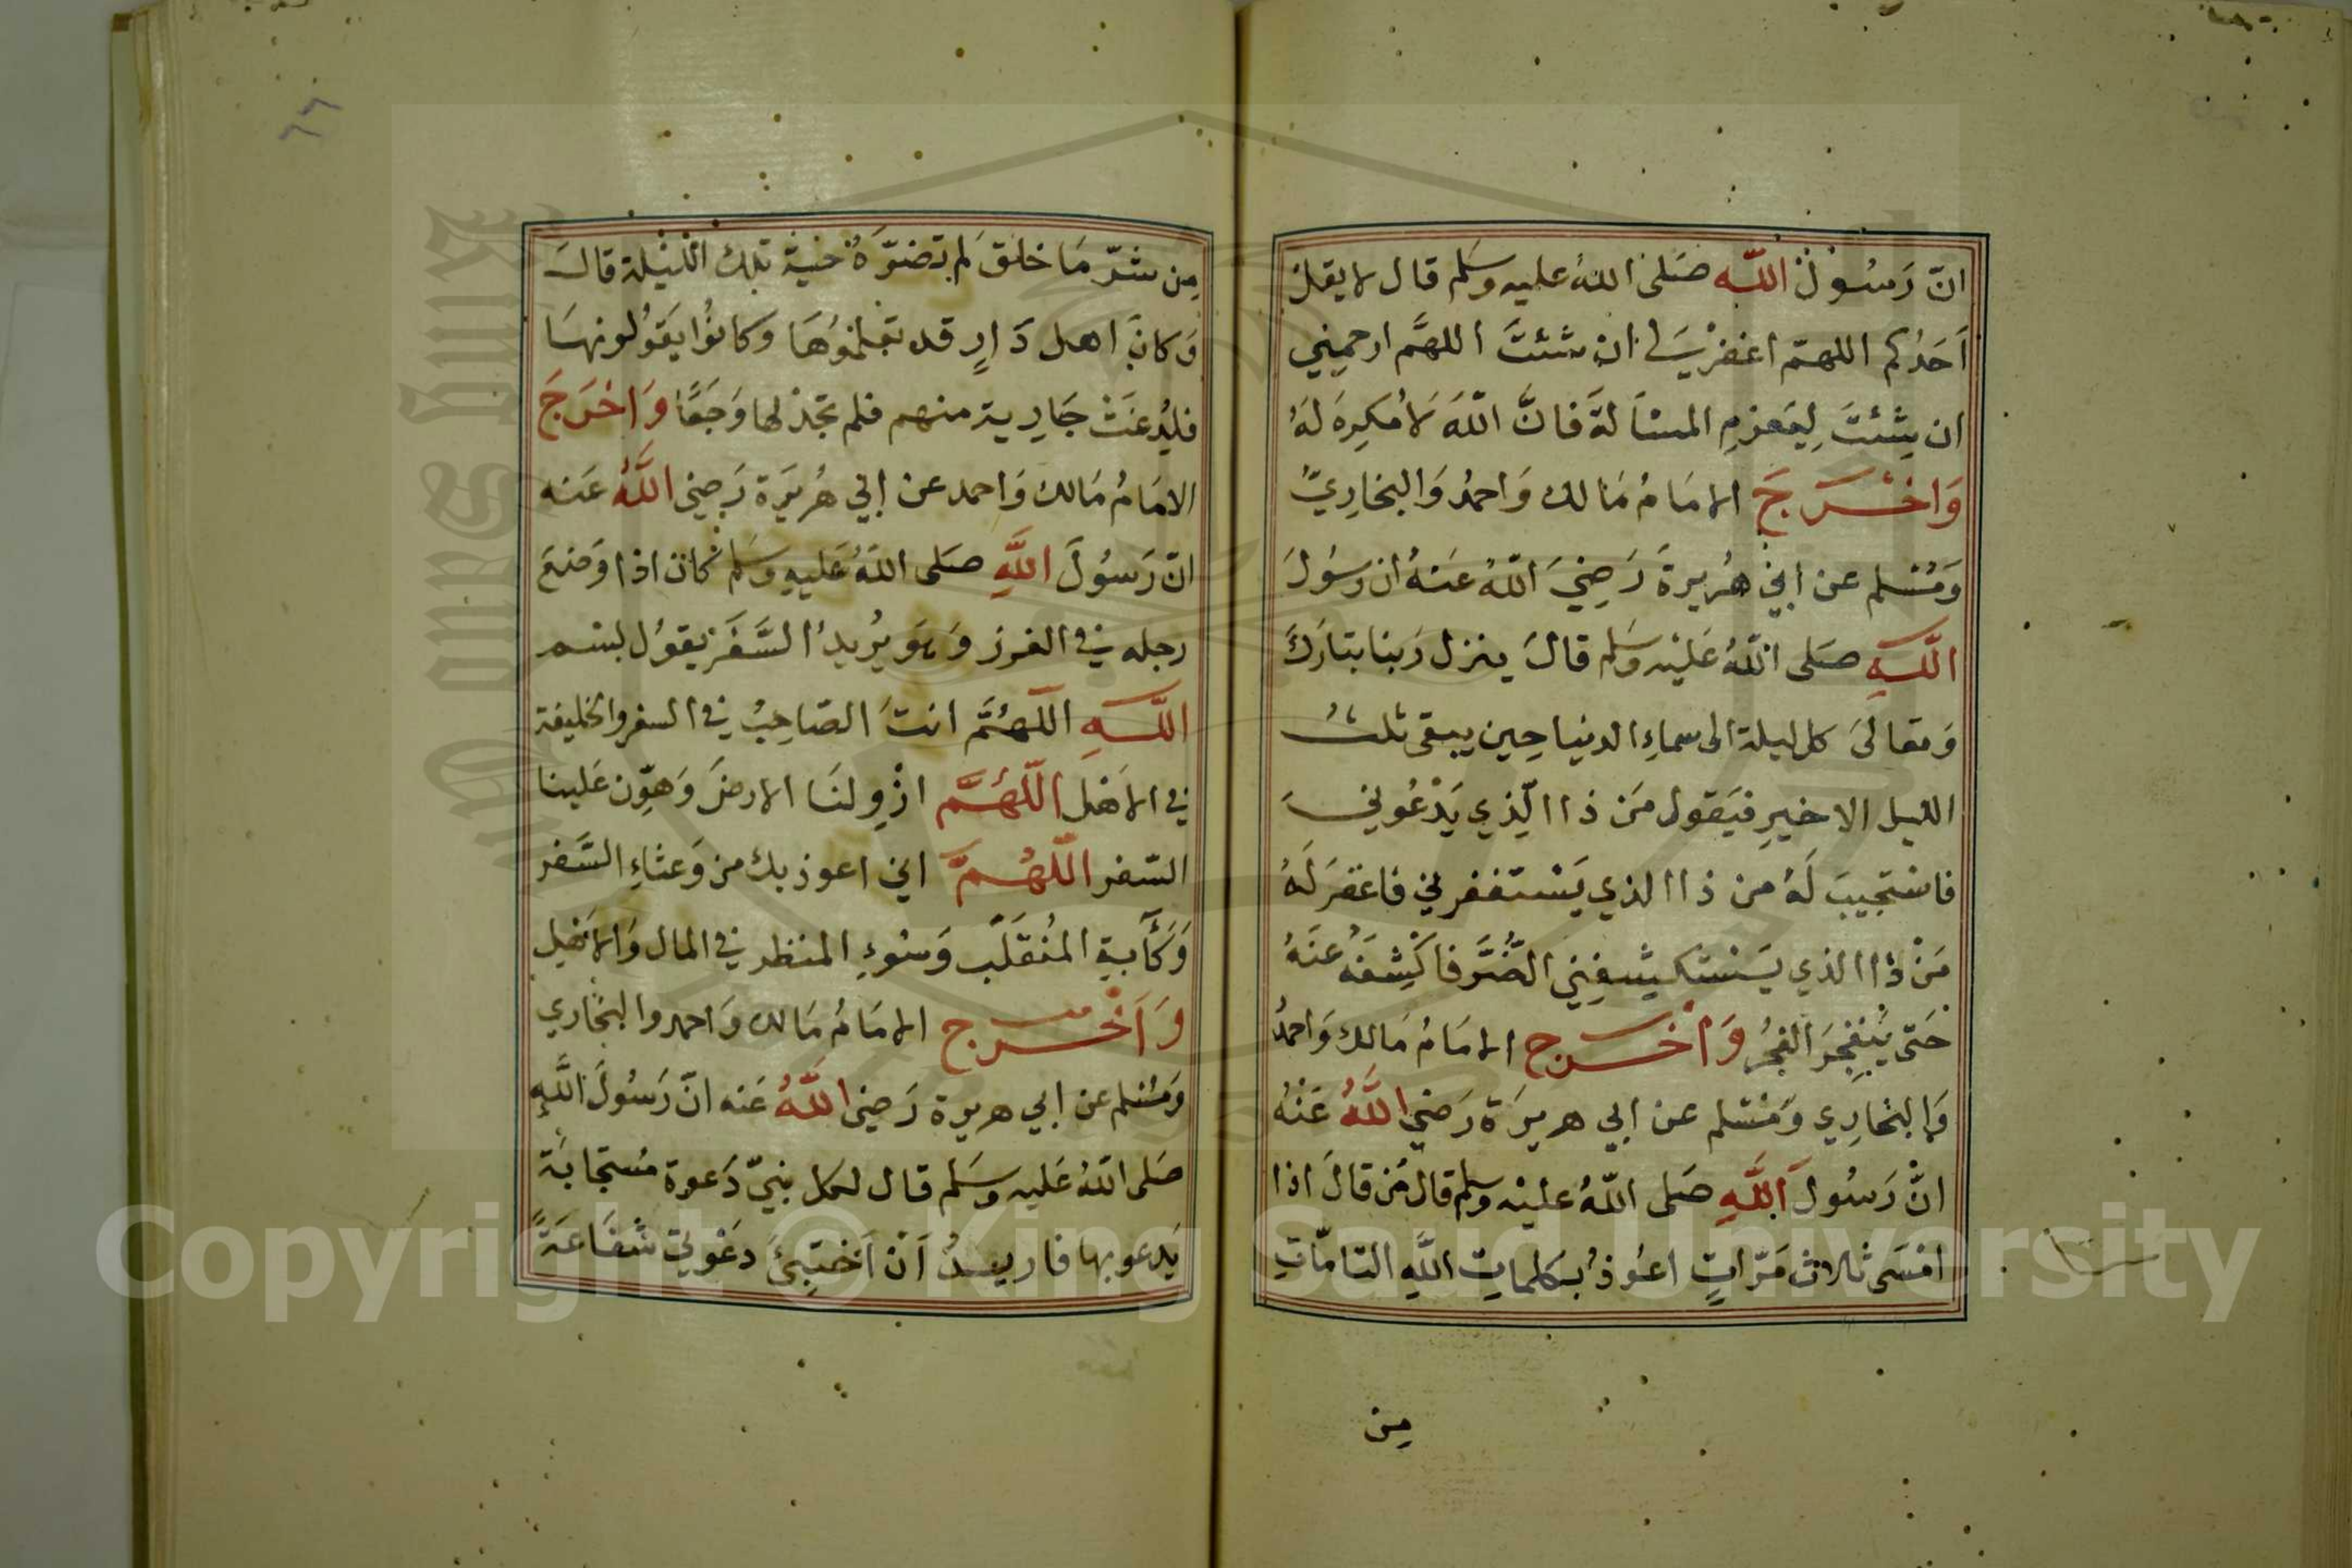 انّ رَسُولَ اللّه صَلى اللهُ عليه وسَلم قال لا يقل
اَحَدُكم اللهمّ اغفرْ لي ان شئتَ اللهمَّ ارحمِني
ان شِئتَ لِيَعزمِ المسْاَلةَ فانَّ اللّهَ لَا مُكرِهَ لَهُ
وَاخْرَجَ الامَامُ مَالك وَاحمدُ وَالبخارِيّ
وَمُسْلم عن ابي هُريرةَ رَضِيَ اللّهُ عَنهُ ان رسُولَ
اللّهِ صَلى اللّهُ عَليْه وسَلم قالَ ينزل رَبنا تبارَكَ
وَتعالَى كل ليلة الى سماءِ الدنيا حِين يبقى ثلثُ
الليل الاخيرِ فيَقول مَن ذا الّذي يَدْعُوني
فاسْتجيبَ لَهُ من ذا الذي يَسْتغفرني فاغفرَ لَهُ
مَنْ ذا الذي يَسْتكشِفِني الضُّرَّ فاكْشِفهُ عنَهُ
حَتى يَنفجِرَ الفجُر وَاخْرج الامَامُ مَالك وَاحمدُ
وَالبخارِي وَمُسْلم عن ابي هريرَة رَضيَ اللَّهُ عَنْهُ
انّ رَسُولَ اللَّهِ صَلى اللّهُ عليْه وسلم قال مَن قالَ اذا
امْسَى ثلاث مَرّاتٍ اعُوذُ بكلماتِ اللَّهِ التامّاتِ
مِن
٢٢
مِن شرّ مَا خلق لم تضرّهُ حَيةٌ تلك الليْلة قالَ
وَكانَ اهل دَارٍ قد تعلموُهَا وكانوُا يَقوُلونهَا
فلُدغَتْ جَارِية منهم فلم تجدْ لها وَجَعًا وَاخْرَجَ
الامَامُ مَالك وَاحمد عن ابي هُريَرة رَضي اللَّهُ عَنه
انّ رَسُولَ اللَّهِ صَلى اللّهُ عَليهِ وسَلم كان اذا وَضعَ
رجله في الغرز وَهوَ يُريدُ السَّفَر يقوُل بسم
اللّهِ اللّهُمَّ انتَ الصّاحِبُ في السفر والخليفة
في الاَهْل اللّهُمَّ ازْوِ لنَا الارضَ وَهوِّن عَلينا
السّفر اللّهُمَّ اني اعوذ بك من وَعثاءِ السَّفر
وَكَآبةِ المُنقَلَب وَسُوءِ المنظر في المال وَالاَهْلِ
وَاَخْرج الامَامُ مَالك وَاحمد والبخاري
وَمُسْلم عن ابي هريرة رَضي اللَّهُ عَنه انّ رَسُولَ اللَّهِ
صَلى اللّهُ عَليه وسَلم قال لكل نبيّ دَعوة مُستجابَة
يَدعو بها فاريدُ اَنْ اَخْتبِئَ دَعْوتي شفَاعَةً
Copyright © King Saud University